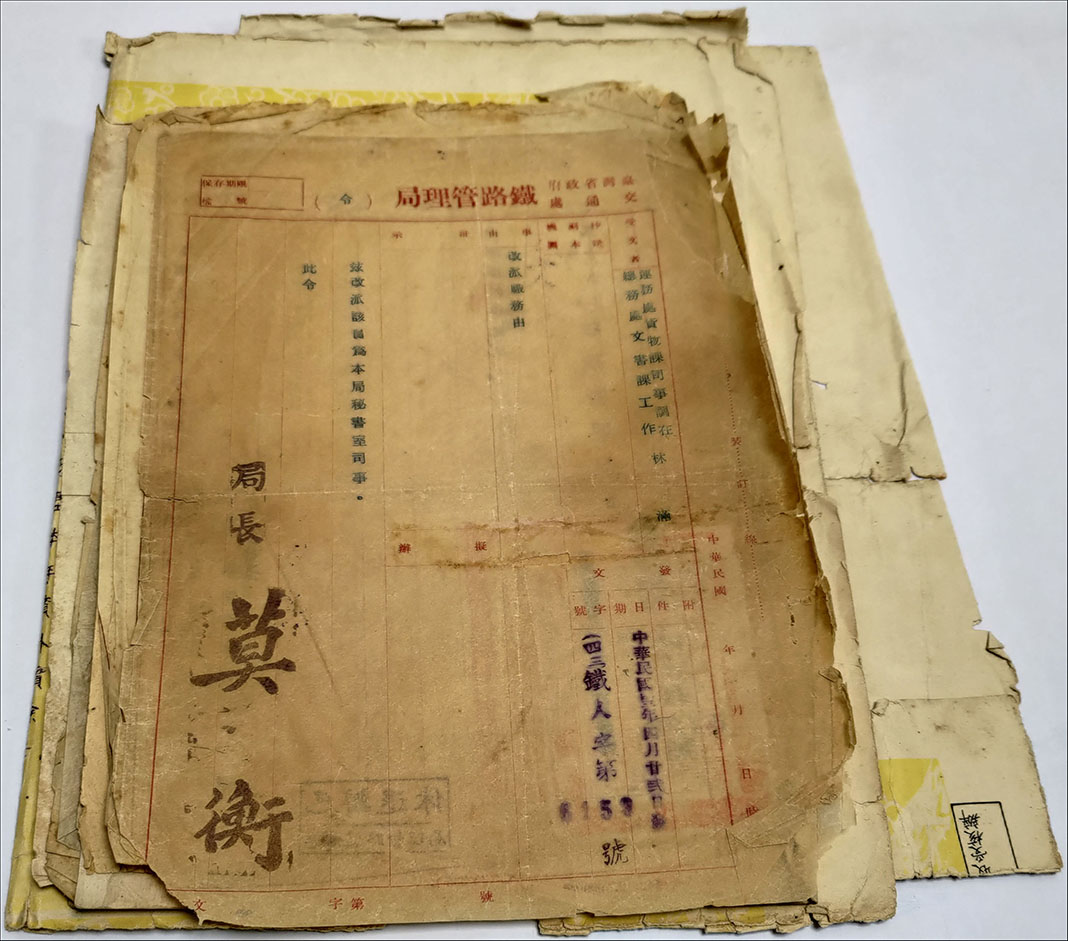 臺灣省政府
交通處
鐵路管理局
(令)
保存期限
號
受文者
運務處貨物課司事調在
總務處文書課工作
林
滿
抄送
副本
機關
事由
改派職務由
批示
茲改派該員為本局秘書室司事。
此令
擬辦
局長
莫衡
裝訂線
中華民國 年 月 日
發文
附件
日期
字號
中華民國 年四月廿
(四三鐵人字第
6153
號
文 字第 號
收受核辦